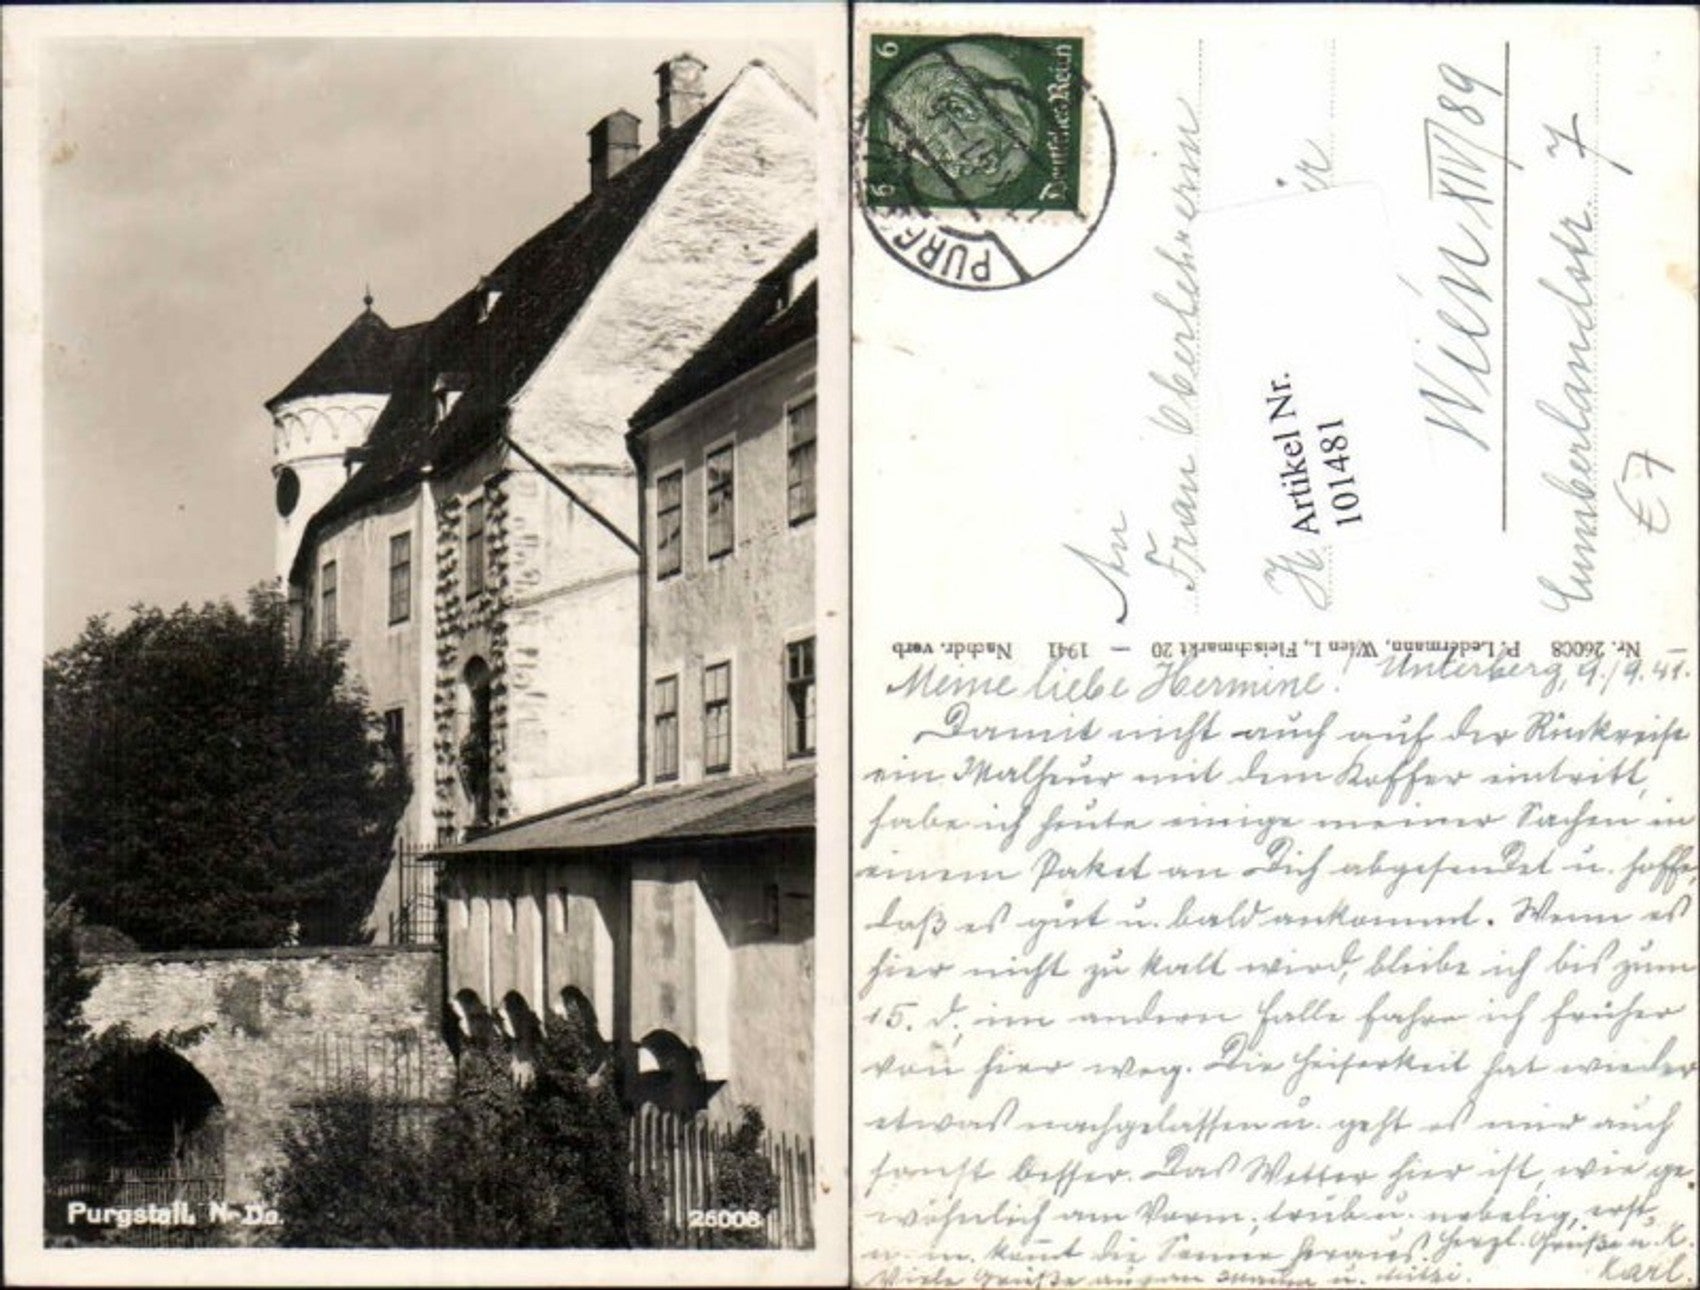 Purgstall, N-Do.
26008
6
6
Deutsches Reich
PURG
An
Frau Oberlehrerin
H
Artikel Nr.
101481
Wien XIV/89
Cumberlandstr. 7
E 7
Nr. 26008 P. Ledermann, Wien I., Fleischmarkt 20 — 1941 Nachdr. verb
Meine liebe Hermine! Unterberg, 9./9.41.
Damit nicht auch auf der Rückreise
ein Malheur mit dem Koffer eintritt,
habe ich heute einige meiner Sachen in
einem Paket an Dich abgesendet u. hoffe,
daß es gut u. bald ankommt. Wenn es
hier nicht zu kalt wird, bleibe ich bis zum
15. d., im andern Falle fahre ich früher
von hier weg. Die Heiserkeit hat wieder
etwas nachgelassen u. geht es mir auch
sonst besser. Das Wetter hier ist, wie ge-
wöhnlich am Vorm., trüb u. nebelig, erst
n. m. kommt die Sonne heraus. Herzl. Grüße u. K.
Viele Grüße an Mama u. Mitzi. Karl.